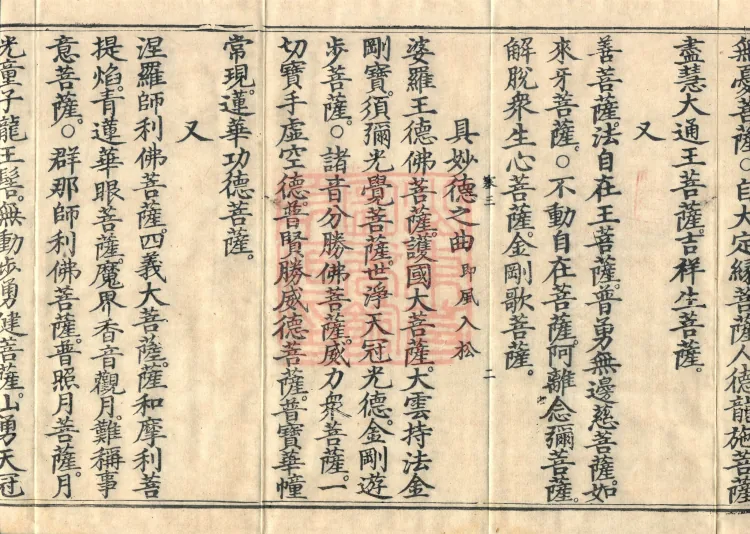 無憂菩薩。○白大定緣菩薩人德龍施菩
盡慧大通王菩薩。吉祥生菩薩。
又
善菩薩。法自在王菩薩。普勇無邊慈菩薩。如
來牙菩薩。○不動自在菩薩。阿離念彌菩薩。
解脫衆生心菩薩。金剛歌菩薩。
卷三 二
具妙德之曲 即風入松
婆羅王德佛菩薩。護國大菩薩。大雲持法金
剛寶。須彌光覺菩薩。世淨天冠光德。金剛遊
步菩薩。○諸音分勝佛菩薩。威力衆菩薩。一
切寶手虛空德。普賢勝威德菩薩。普寶華幢
常現。蓮華功德菩薩。
又
涅羅師利佛菩薩。四義大菩薩。薩和摩利菩
提焰。青蓮華眼菩薩。魔界香音觀月。難稱事
意菩薩。○群那師利佛菩薩。普照月菩薩。月
光童子龍王髻。無動步勇健菩薩。山勇天冠